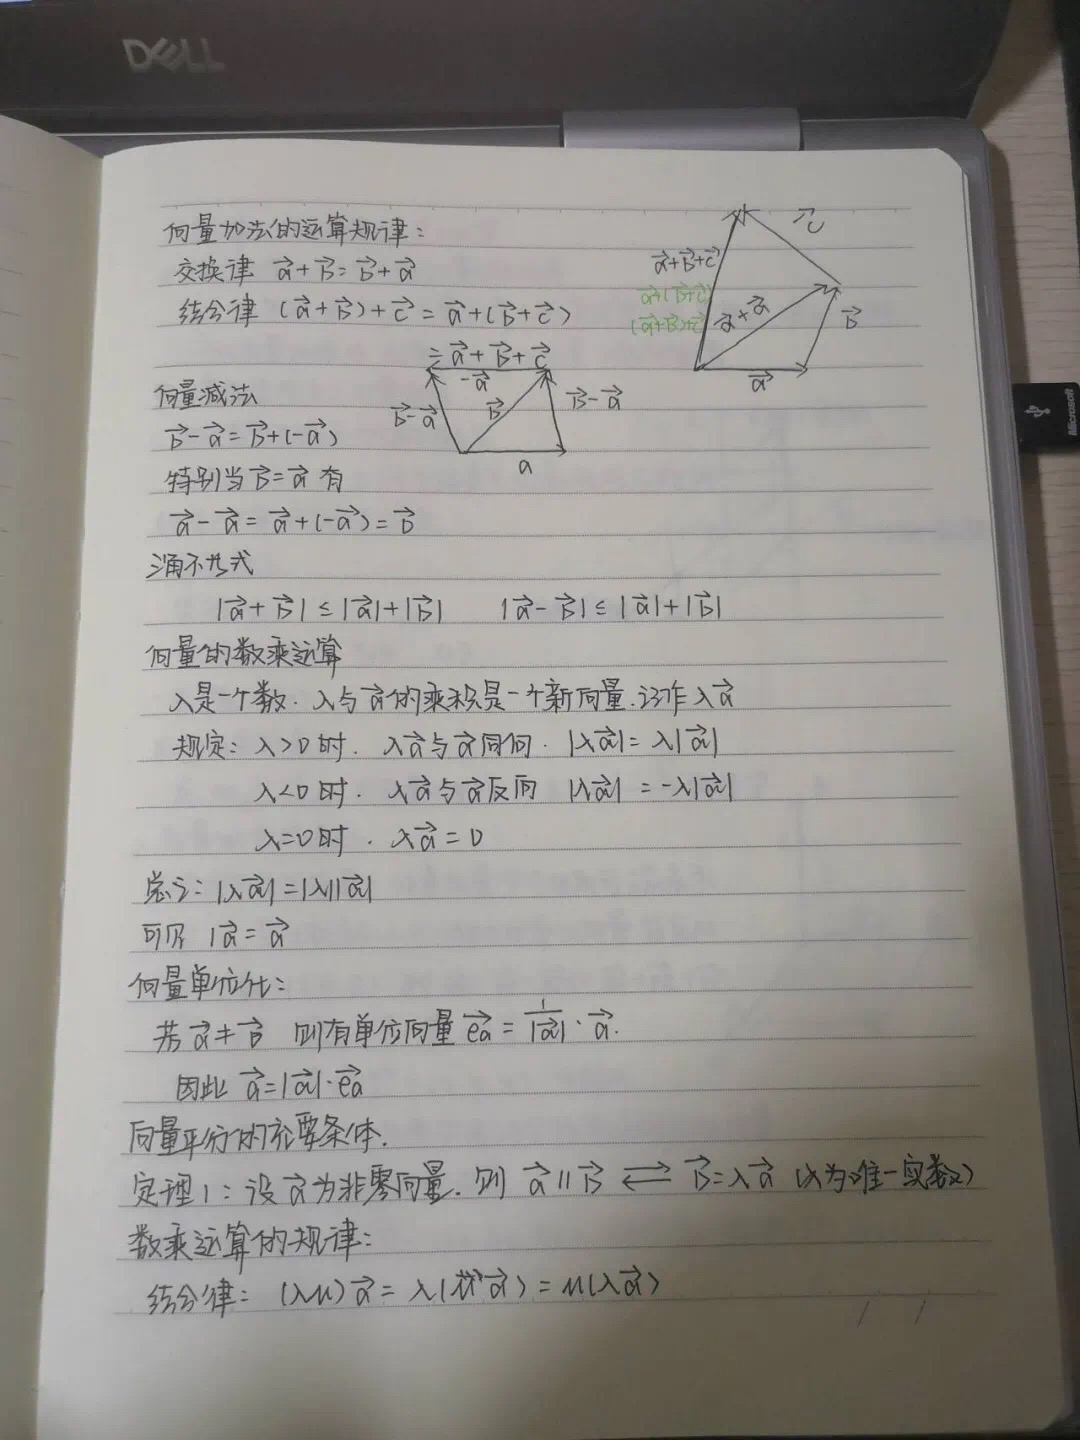 DELL
向量加法的运算规律:
交换律 a⃗+b⃗=b⃗+a⃗
结合律 (a⃗+b⃗)+c⃗=a⃗+(b⃗+c⃗)
=a⃗+b⃗+c⃗
c⃗
a⃗+b⃗+c⃗
a⃗+(b⃗+c⃗)
(a⃗+b⃗)+c⃗
b⃗
a⃗
向量减法
-a⃗
b⃗-a⃗
b⃗
b⃗-a⃗
a
b⃗-a⃗=b⃗+(-a⃗)
特别当b⃗=a⃗有
a⃗-a⃗=a⃗+(-a⃗)=0⃗
|a⃗+b⃗|≤|a⃗|+|b⃗| |a⃗-b⃗|≤|a⃗|+|b⃗|
向量的数乘运算
λ是一个数.λ与a⃗的乘积是一个新向量.记作λa⃗
规定:λ>0时.λa⃗与a⃗同向.|λa⃗|=λ|a⃗|
λ<0时.λa⃗与a⃗反向 |λa⃗|=-λ|a⃗|
λ=0时.λa⃗=0
总之:|λa⃗|=|λ||a⃗|
可见 1a⃗=a⃗
向量单位化:
若a⃗≠0⃗ 则有单位向量e⃗a=1/|a⃗|·a⃗.
因此 a⃗=|a⃗|·e⃗a
向量平行的充要条件.
定理1:设a⃗为非零向量.则 a⃗∥b⃗ ⇌ b⃗=λa⃗ (λ为唯一实数)
数乘运算的规律:
结合律:(λμ)a⃗=λ(μa⃗)=μ(λa⃗)
Microsoft